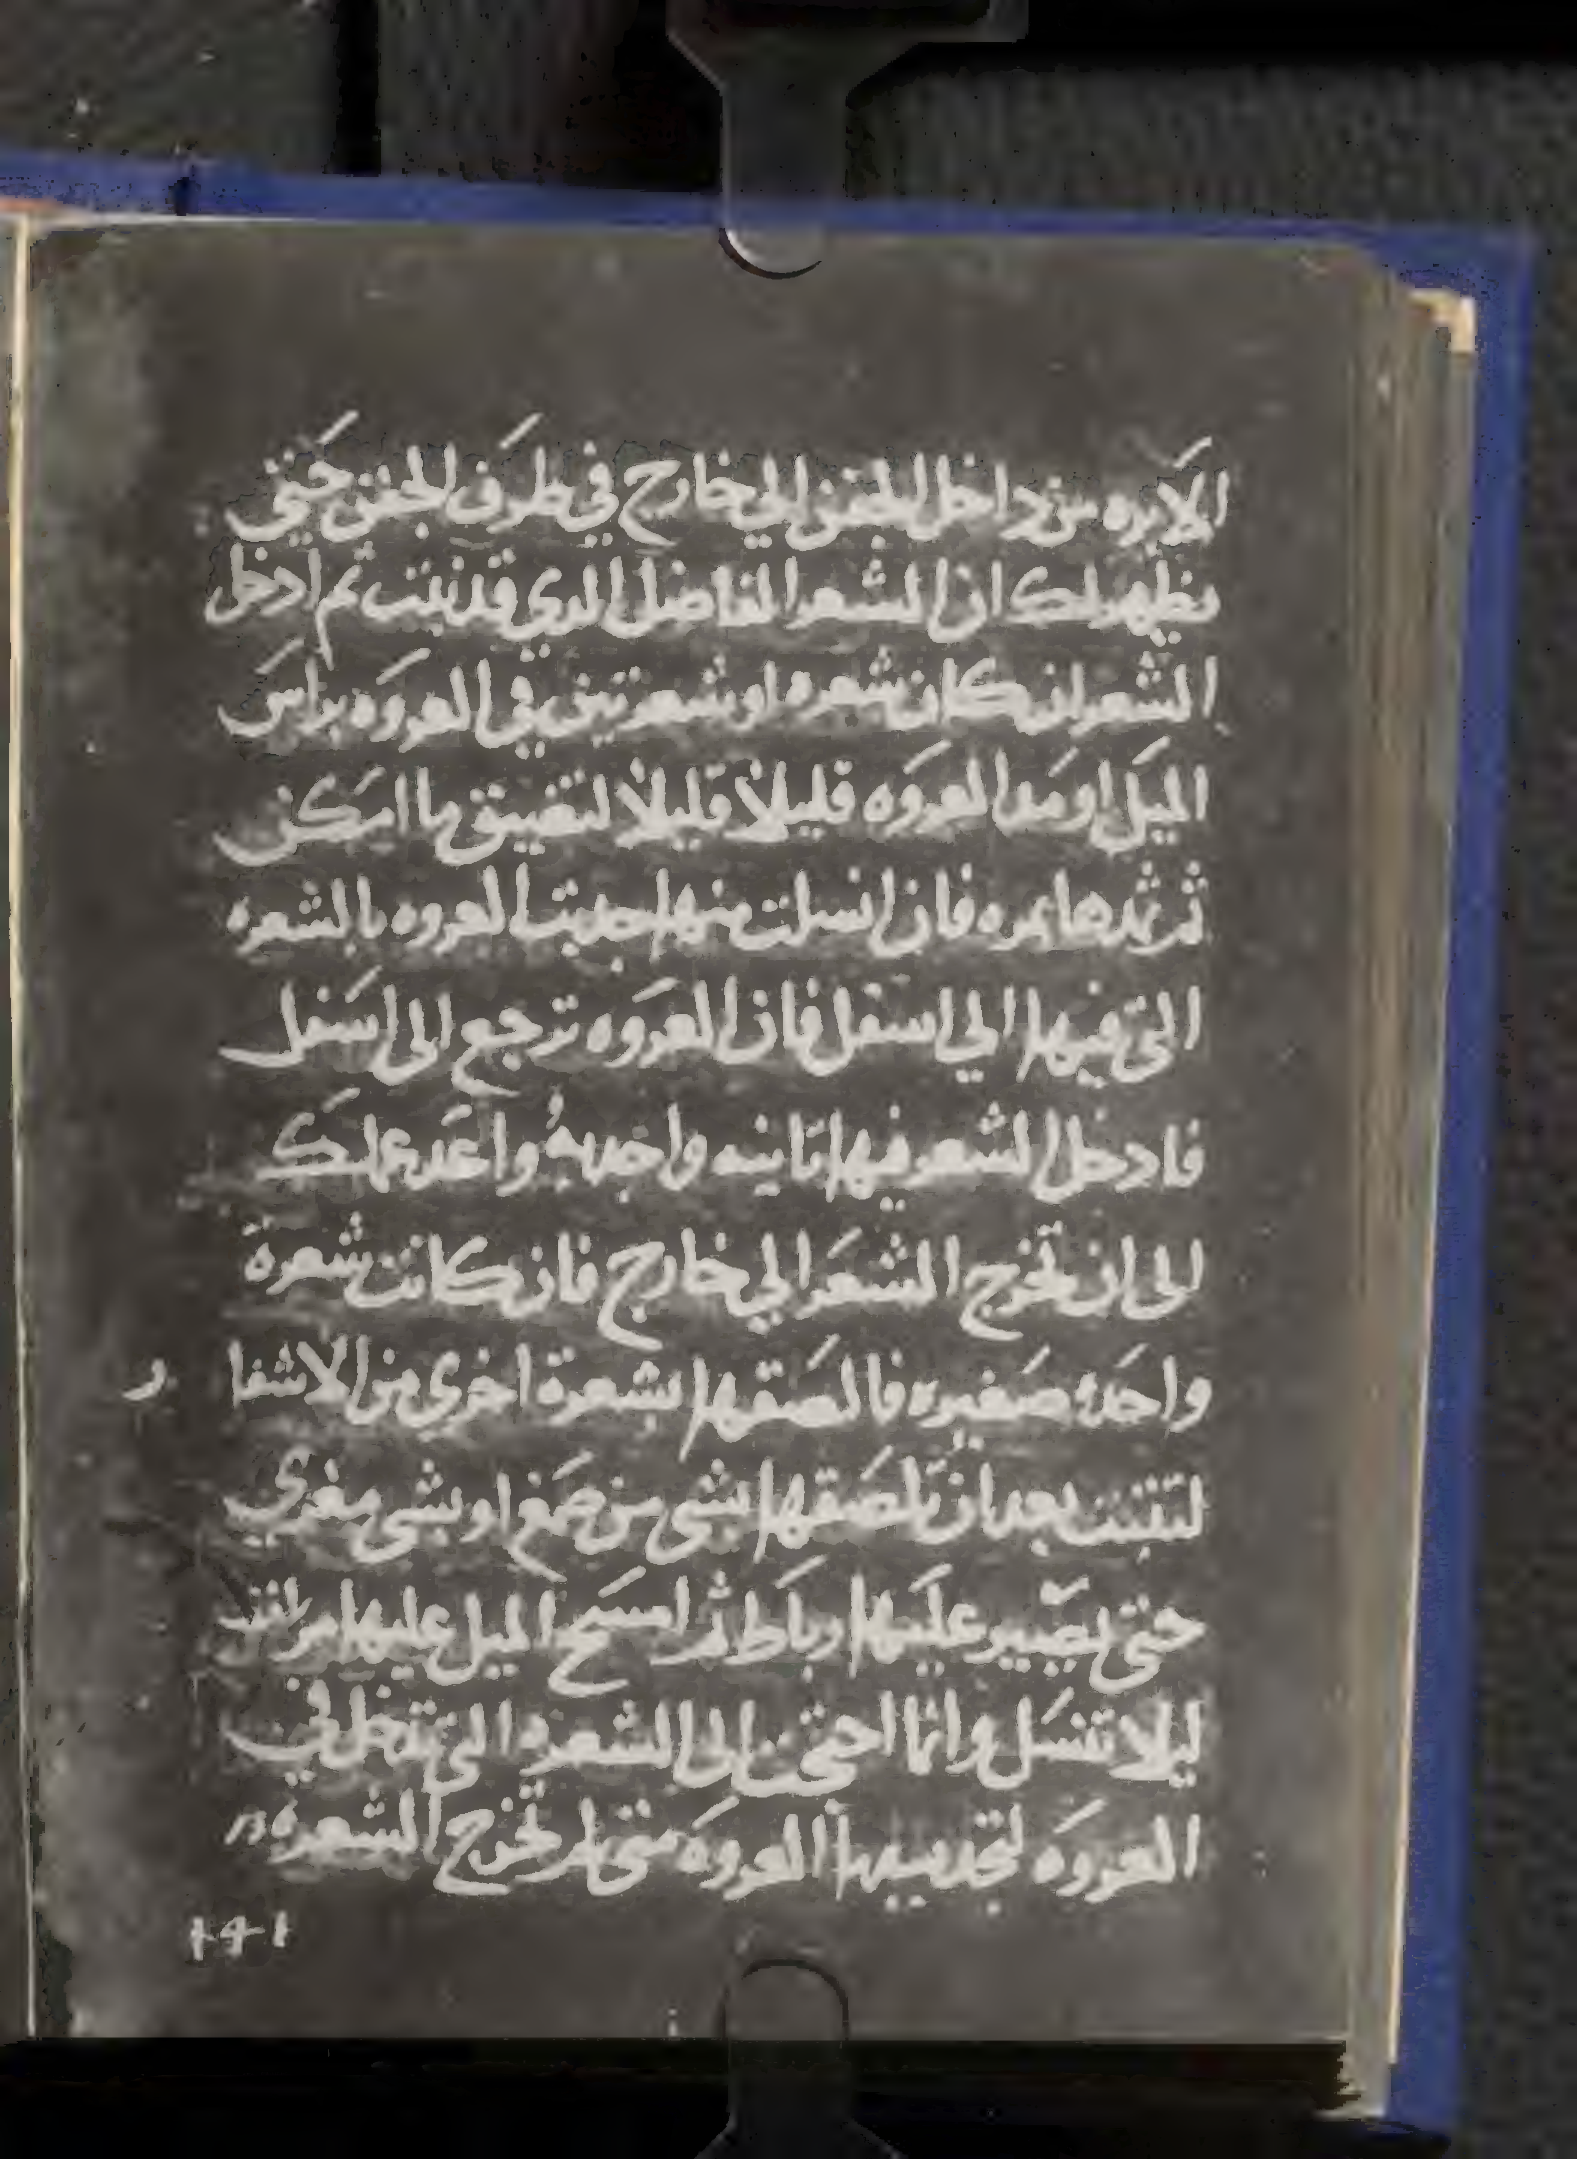 الابره من داخل الجفن الي خارج في طرف الجفن حتي
يظهر لك ان الشعر الفاضل الدي قد نبتت ثم ادخل
الشعر ان كان شعره او شعرتين في العروه براس
الميل او مد العروه قليلا قليلا لتضيق ما امكن
ثم تمدها بمره فان انسلت منها جدبت العروه بالشعره
التي فيها الي اسفل فان العروه ترجع الى اسفل
فادخل الشعر فيها ثانيه واجدبه واعد عملك
الى ان تخرج الشعر الي خارج فان كانت شعرة
واحده صغيره فالصقها بشعرة اخري من الاشفار
لتثبت بعد ان تلصقها بشي من صمغ او بشي مغري
حتى يصير عليها رباط ثم امسح الميل عليها مراتب
ليلا تنسل وانما احتجت الى الشعره التي تدخل في
العروه لتجدب بها العروه متى لم تخرج الشعره
١٩١